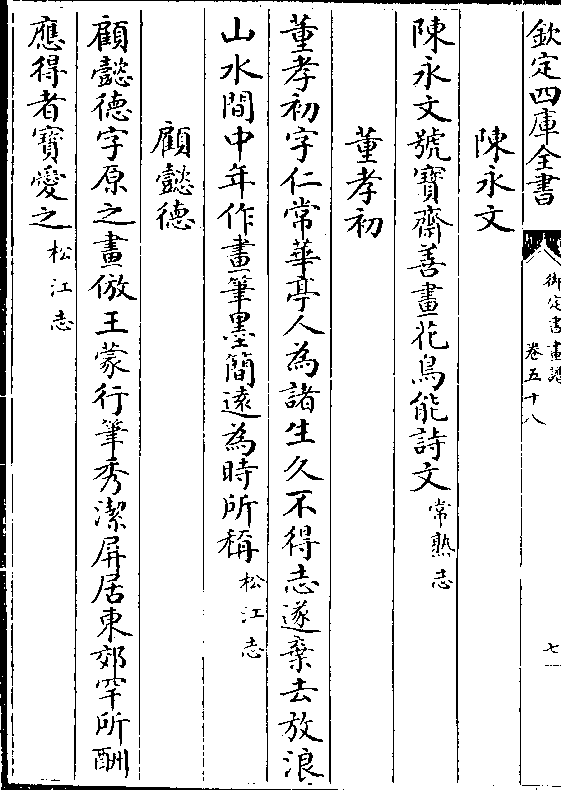 欽定四庫全書
御定書畫譜
卷五十八
七
陳永文
陳永文號寶齋善畫花鳥能詩文常熟志
董孝初
董孝初字仁常華亭人為諸生久不得志遂棄去放浪
山水間中年作畫筆墨簡遠為時所稱松江志
顧懿德
顧懿德字原之畫倣王蒙行筆秀潔屏居東郊罕所酬
應得者寶愛之松江志